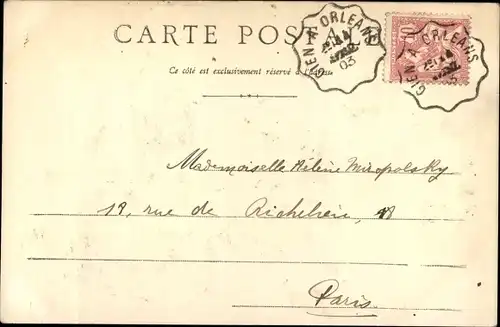 CARTE POSTALE
Ce côté est exclusivement réservé à l'adresse
GIEN A ORLEANS
03
GIEN A ORLEANS
10
Mademoiselle Hélène Miropolsky
19, rue de Richelieu, 19
Paris.